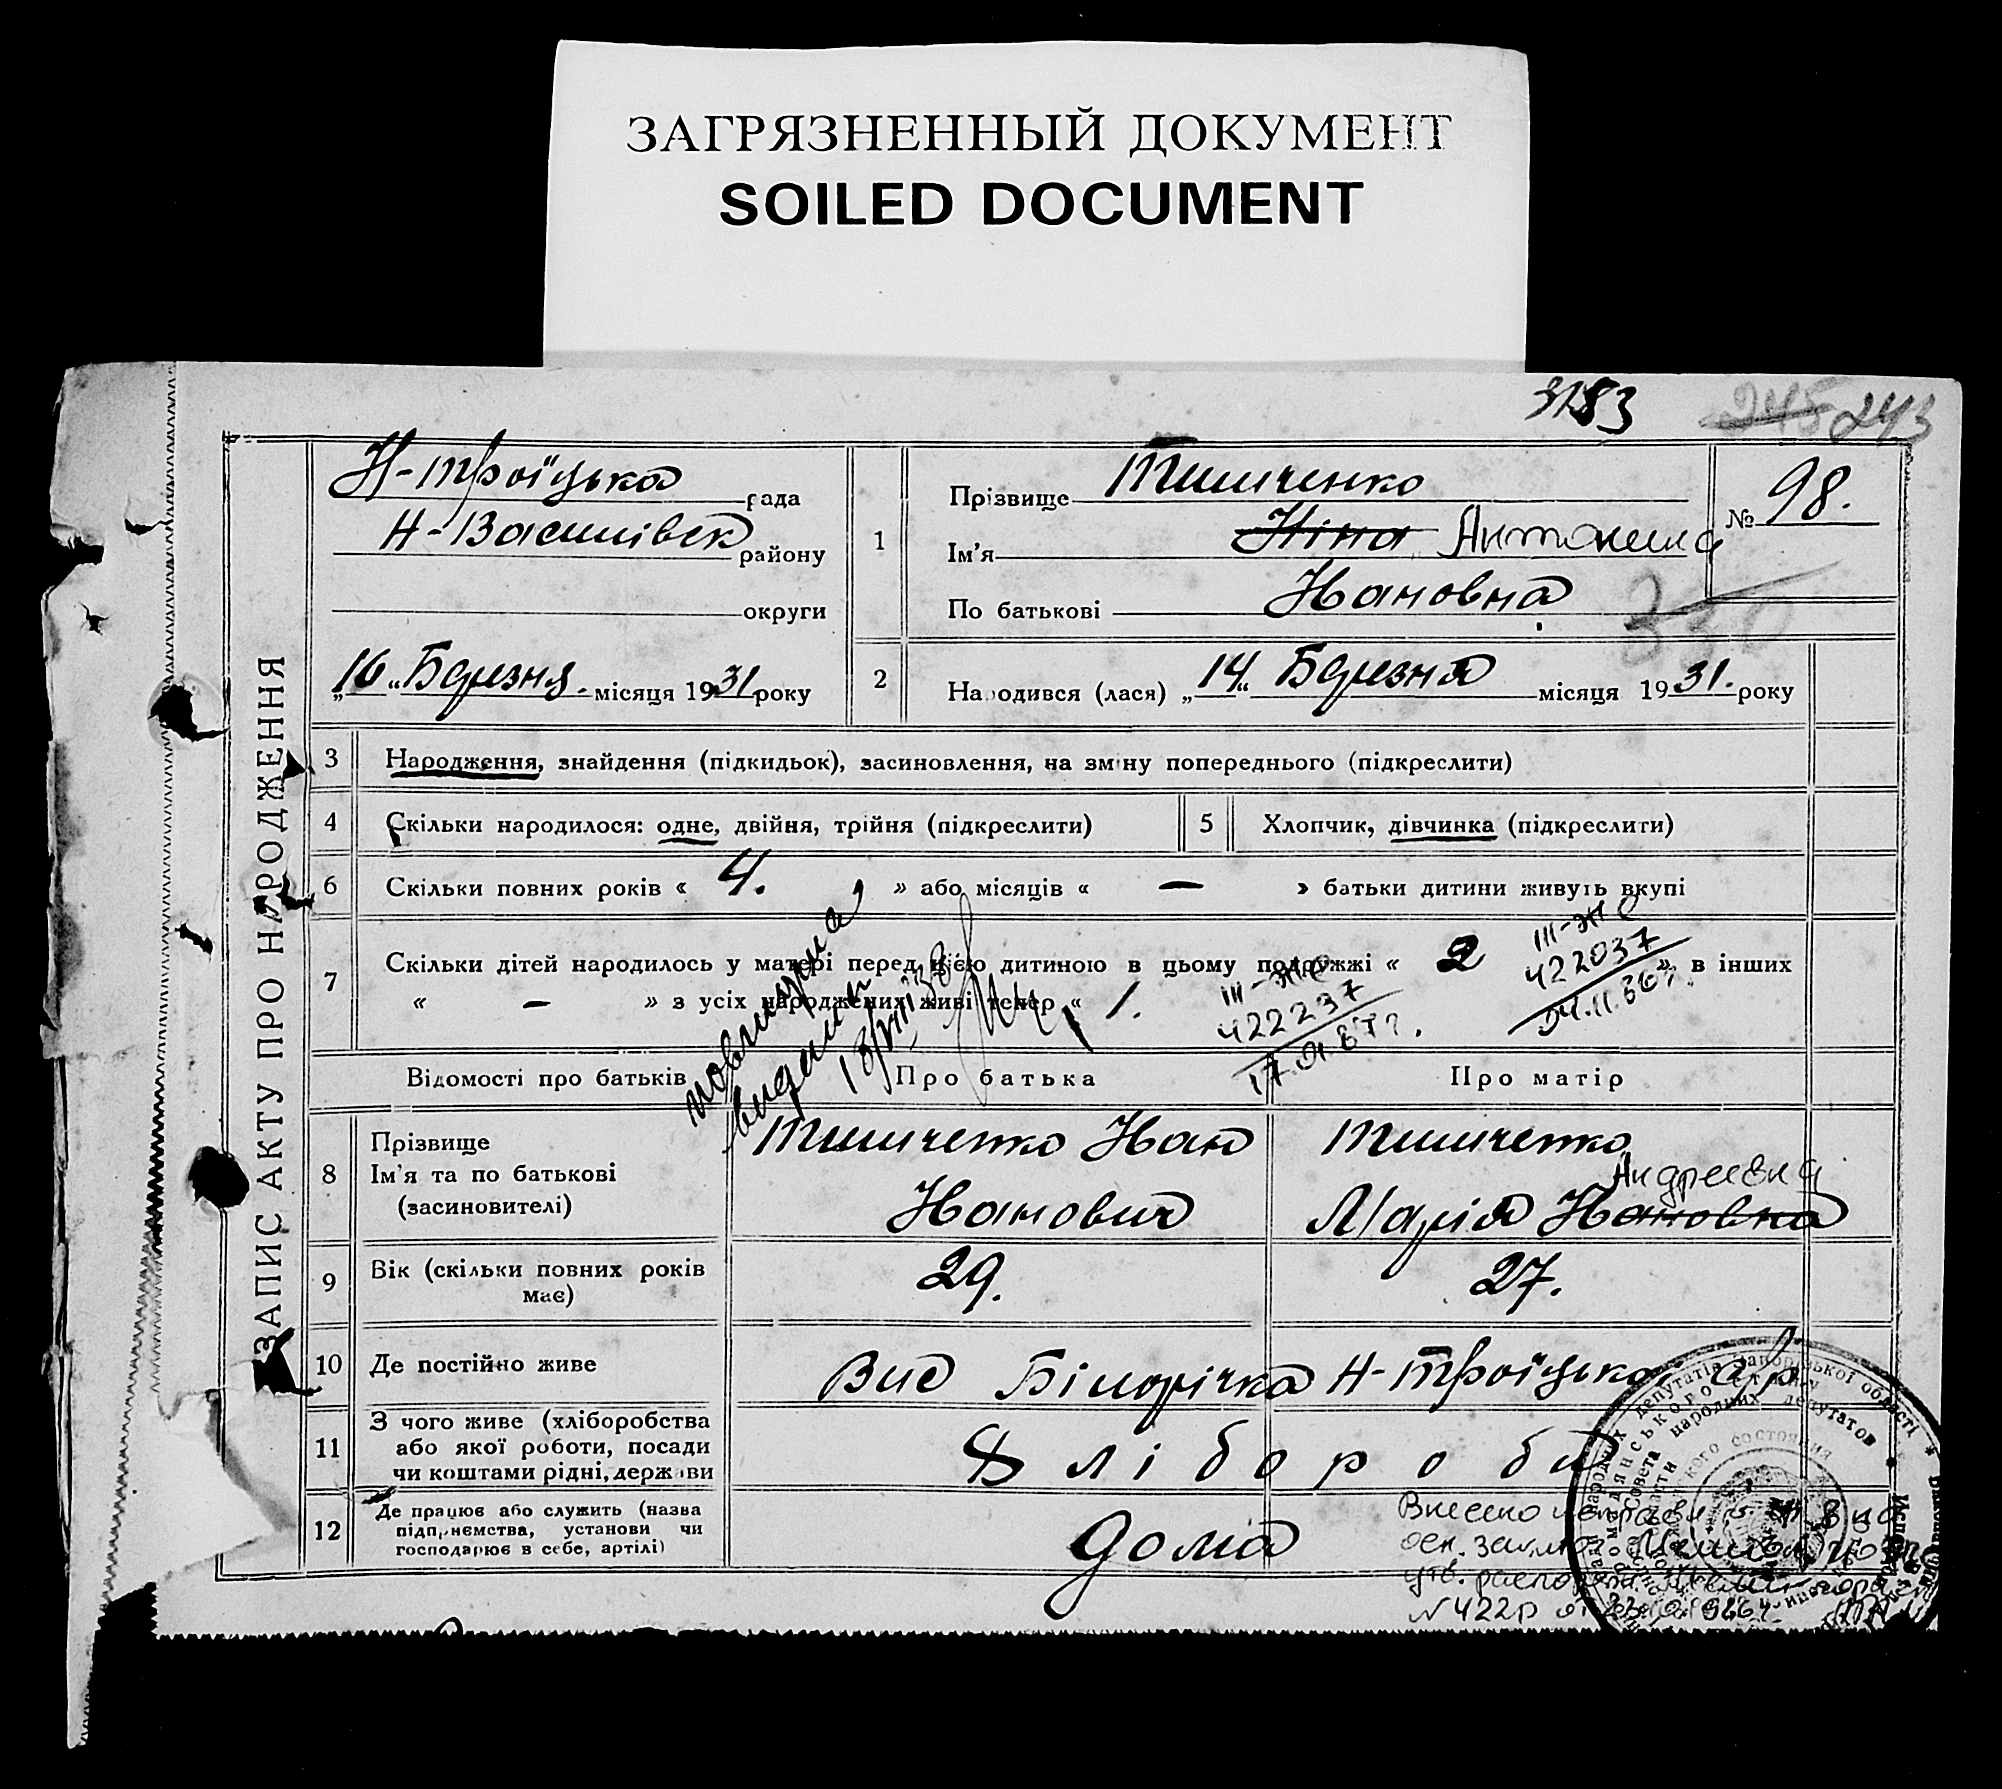 ЗАГРЯЗНЕННЫЙ ДОКУМЕНТ
SOILED DOCUMENT
3283
245 243
ЗАПИС АКТУ ПРО НАРОДЖЕННЯ
Н-Троїцька рада
Н-Василівськ району
округи
„16“ Березня. місяця 1931 року
1
Прізвище Тимченко
Ім'я Ніна Антонина
По батькові Ивановна
№ 98.
330
2
Народився (лася) „14“ Березня місяця 1931. року
3 Народження, знайдення (підкидьок), засиновлення, на зміну попереднього (підкреслити)
4 Скільки народилося: одне, двійня, трійня (підкреслити)
5 Хлопчик, дівчинка (підкреслити)
6 Скільки повних років « 4. » або місяців « — » батьки дитини живуть вкупі
7 Скільки дітей народилось у матері перед цією дитиною в цьому подружжі « 2 » в інших
« — » з усіх народжених живі тепер « 1.
III-ЖС
422237
III-ЖС
422037
Відомості про батьків
Про батька
Про матір
8 Прізвище
Ім'я та по батькові
(засиновителі)
Тимченко Иван
Иванович
Тимченко
Андреевна
Марія Ивановна
9 Вік (скільки повних років
має)
29.
27.
10 Де постійно живе
Вис Білорічка Н-Троїцької с/р
11 З чого живе (хліборобства
або якої роботи, посади
чи коштами рідні, держави
Хлібороби
12 Де працює або служить (назва
підприємства, установи чи
господарює в себе, артілі)
Дома